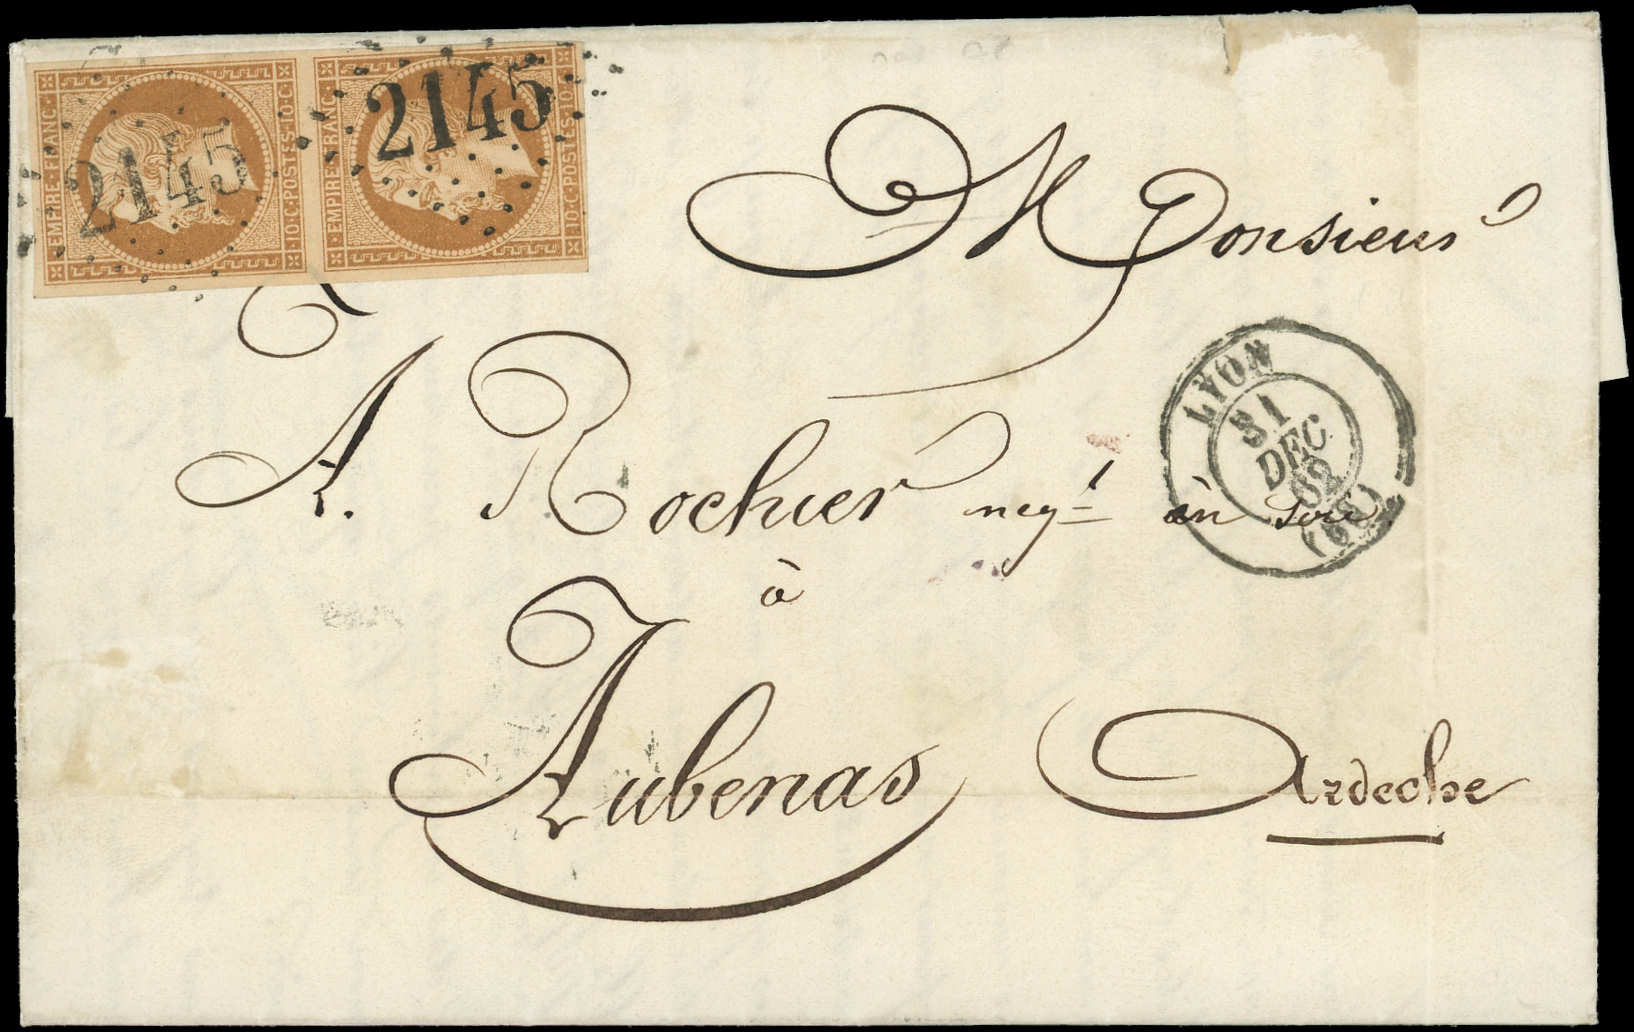 EMPIRE·FRANC· 10·C·POSTES·10·C·
EMPIRE·FRANC· 10·C·POSTES·10·C·
2145
2145
Monsieur
A. Rochier neg.t en soie
à
Aubenas Ardeche
LYON
31
DEC
62
(68)